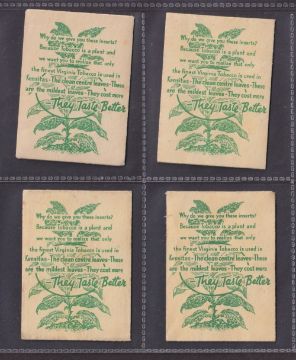 Why do we give you these inserts?
Because Tobacco is a plant and
we want you to realise that only
the finest Virginia Tobacco is used in
Kensitas—The clean centre leaves—These
are the mildest leaves—They cost more
—They Taste Better
Why do we give you these inserts?
Because Tobacco is a plant and
we want you to realise that only
the finest Virginia Tobacco is used in
Kensitas—The clean centre leaves—These
are the mildest leaves—They cost more
—They Taste Better
Why do we give you these inserts?
Because Tobacco is a plant and
we want you to realise that only
the finest Virginia Tobacco is used in
Kensitas—The clean centre leaves—These
are the mildest leaves—They cost more
—They Taste Better
Why do we give you these inserts?
Because Tobacco is a plant and
we want you to realise that only
the finest Virginia Tobacco is used in
Kensitas—The clean centre leaves—These
are the mildest leaves—They cost more
—They Taste Better